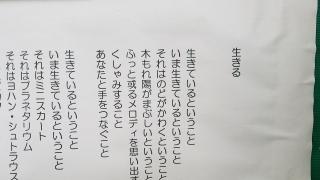 生きる
生きているということ
いま生きているということ
それはのどがかわくということ
木もれ陽がまぶしいということ
ふっと或るメロディを思い出す
くしゃみすること
あなたと手をつなぐこと
生きているということ
いま生きているということ
それはミニスカート
それはプラネタリウム
それはヨハン・シュトラウス